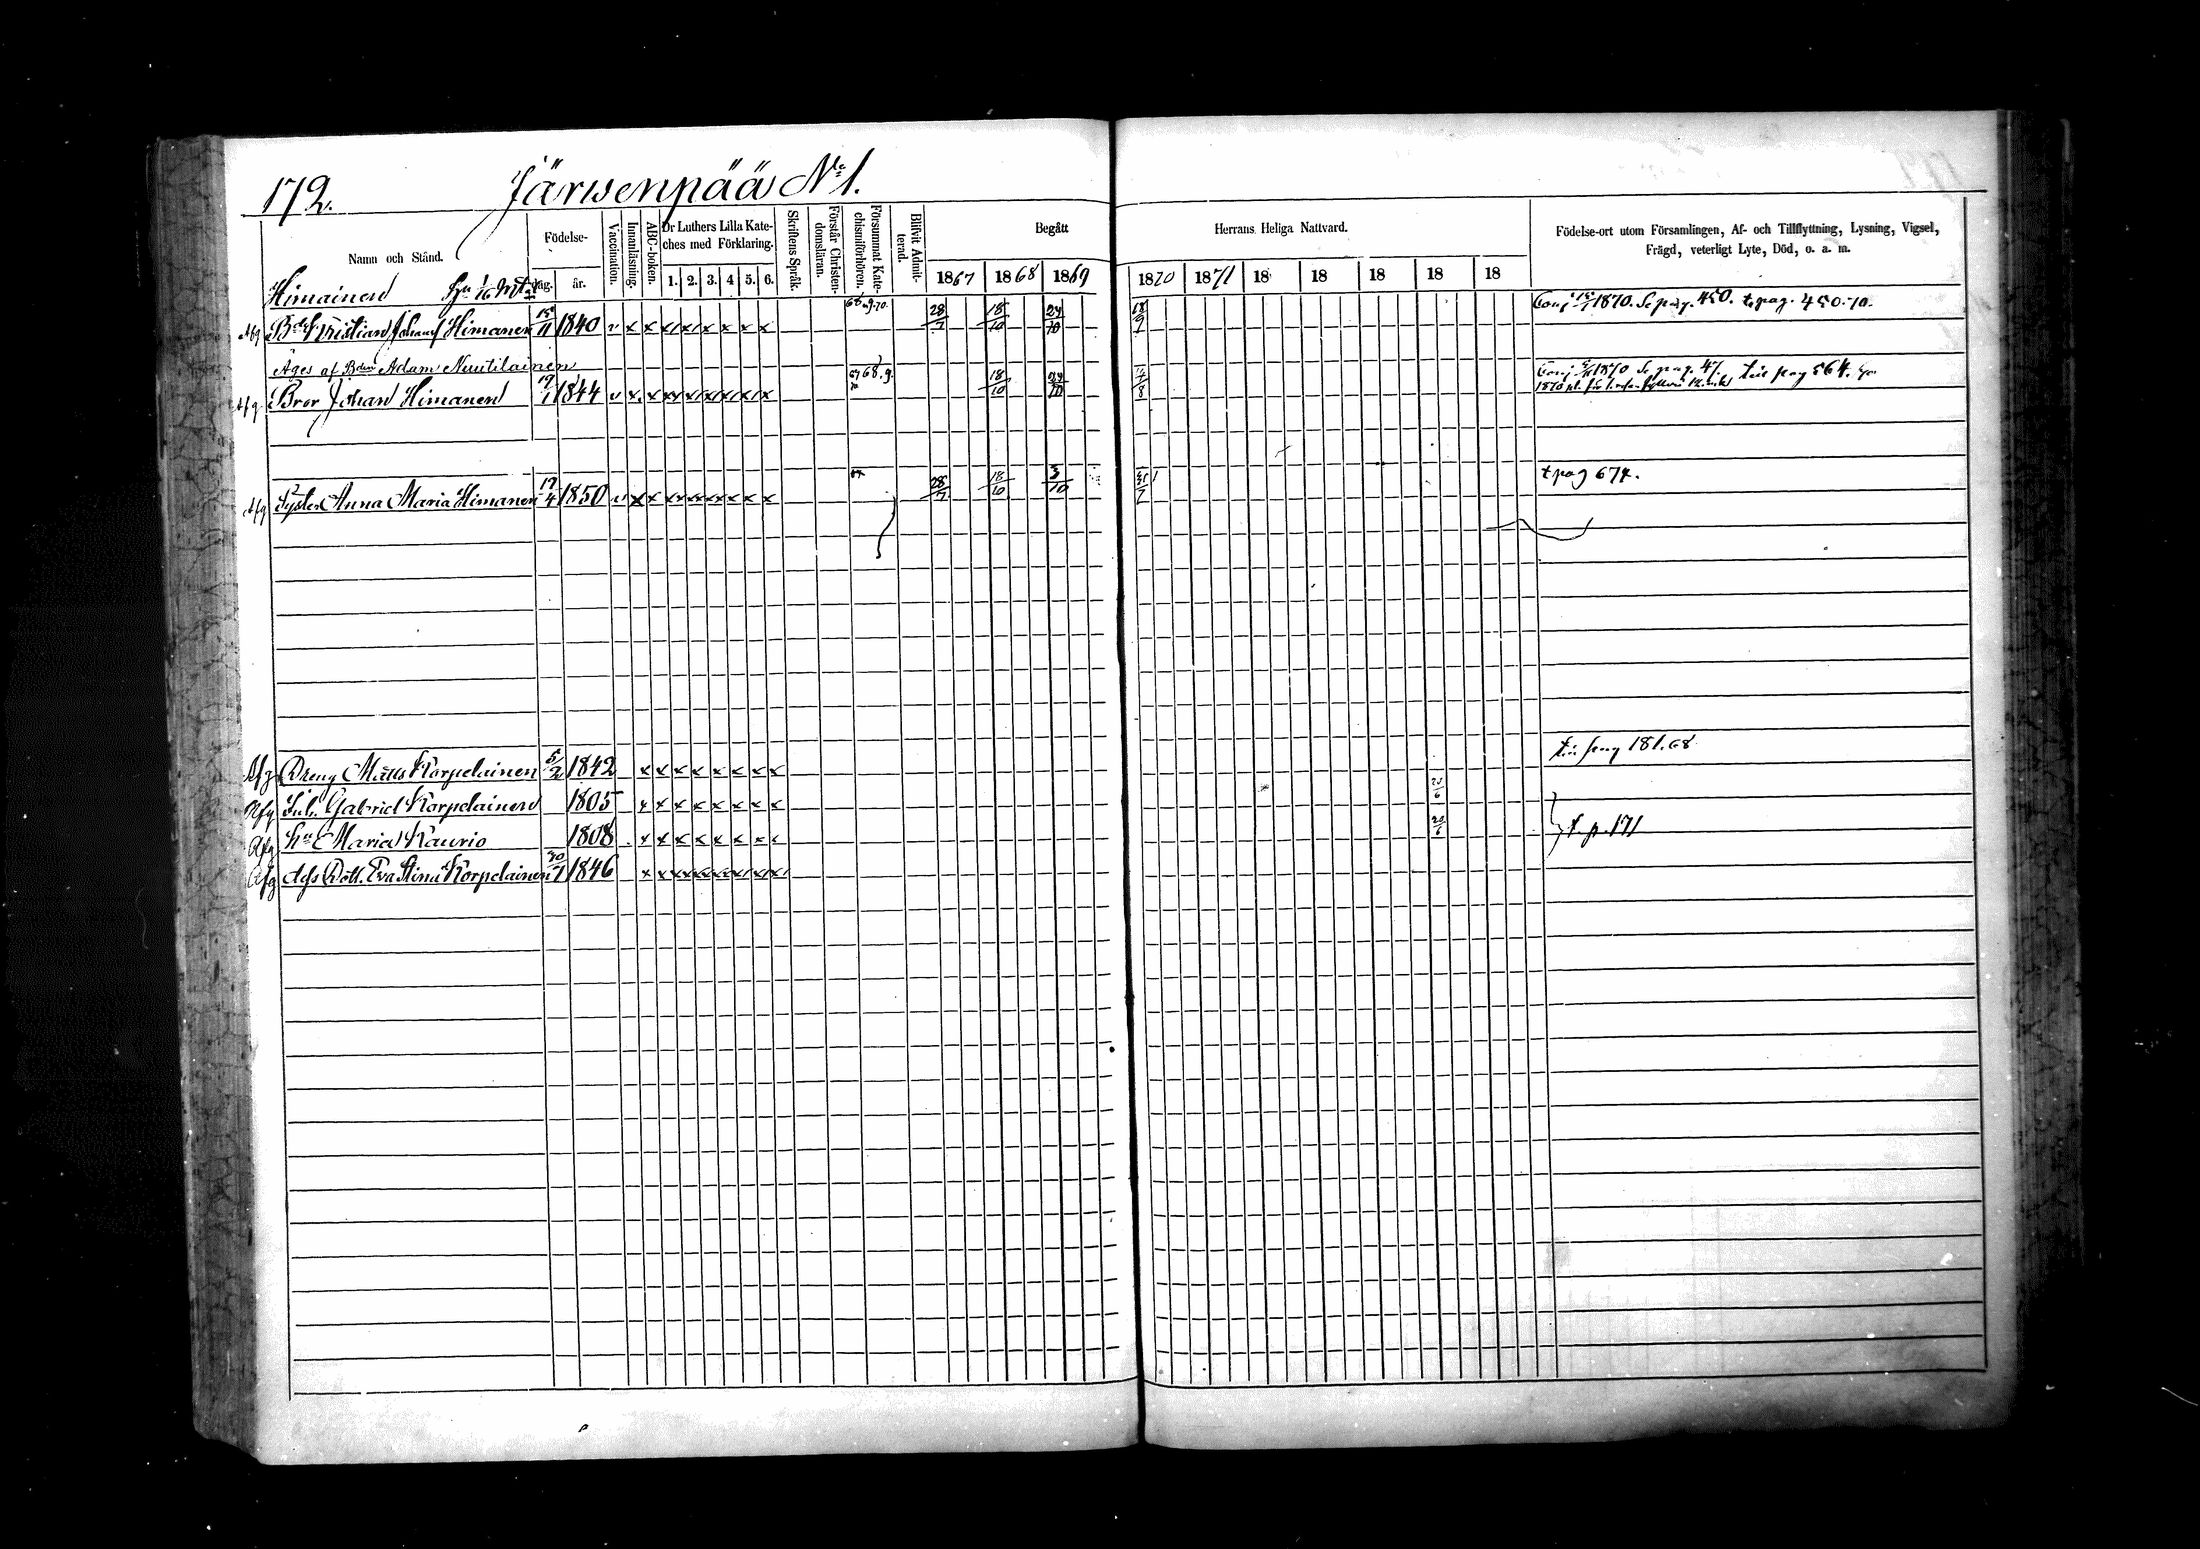 172. Järwenpää No 1.
Namn och Stånd.
Födelse-
dag.
år.
Vaccination.
Innanläsning.
ABC-boken.
Dr Luthers Lilla Kate-
ches med Förklaring.
1. 2. 3. 4 5. 6.
Skriftens Språk.
Förstår Christen-
domsläran.
Försummat Kate-
chismiförhören.
Blifvit Admit-
terad.
Begått
Herrans Heliga Nattvard.
1867 1868 1869 1870 1871 18 18 18 18 18
Födelse-ort utom Församlingen, Af- och Tillflyttning, Lysning, Vigsel,
Frägd, veterligt Lyte, Död, o. a. m.
Himainen 1/16 Mtl
Afg Bde Kristian Johansf Himanen 15/11 1840 v x x x x x x x x 68.9.70. 28/7 18/10 24/10 18/9 1870. Se pag. 450. t. pag. 450.70.
Äges af Bden Adam Nuutilainen
Afg Bror Johan Himanen 19/1 1844 v x x x x x x x x 67 68.9. 18/10 24/10 1870 Se pag. 47. till pag 564.
Afg Syster Anna Maria Himanen 17/4 1850 v x x x x x x x x 28/7 18/10 3/10 31/7 t pag 674.
Afg Dreng Matts Korpelainen 5/2 1842 x x x x x x x x till pag 181.68
Afg Inh. Gabriel Korpelainen 1805 x x x x x x x x 20/6
Afg Hu Maria Kaurio 1808 x x x x x x x x 20/6 t. p. 171
Afg ds Dott. Eva Stina Korpelainen 30/7 1846 x x x x x x x x